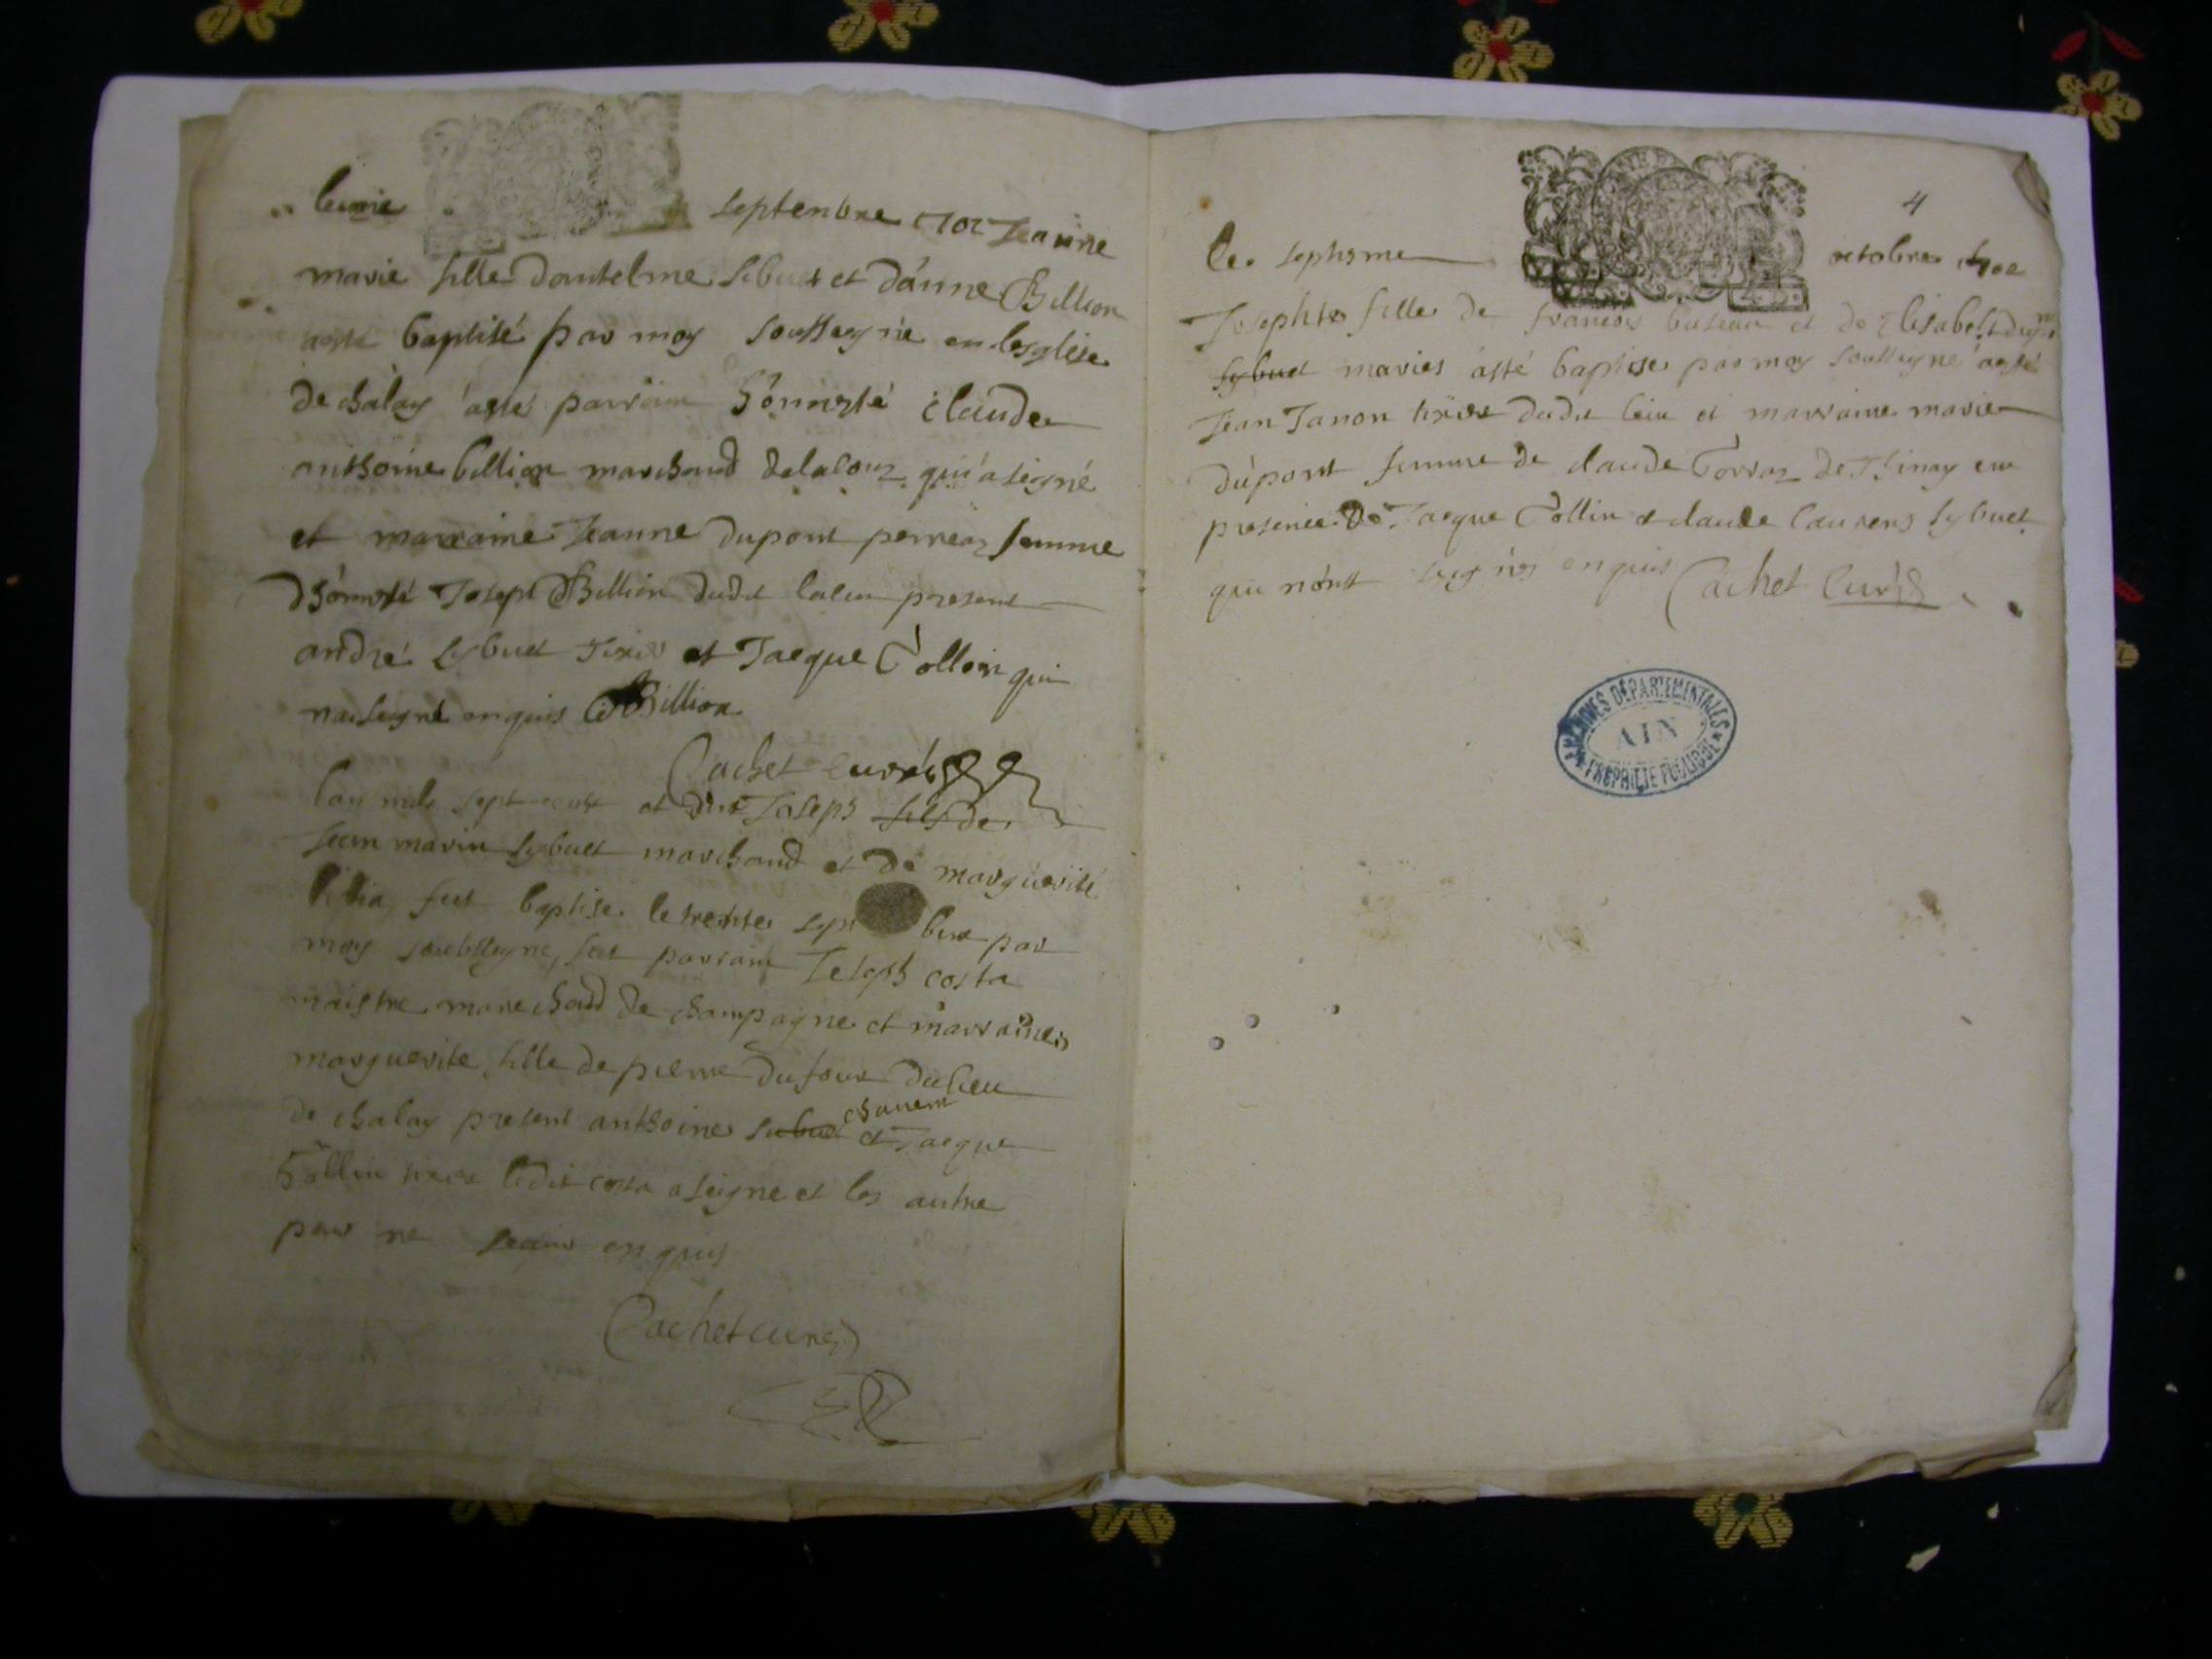 septembre 1702 Jeanne
marie fille dantelme Sibuet et d'anne Billion
a esté baptisé par moy soussigné en lesglise
de chalay a esté parrain honnesté claude
anthoine billion marchand qui a signé
et marraine Jeanne dupont perreaz femme
d'honnesté Joseph Billion dudit present
andré Sybuet tixier et Jacque Collin qui
na signé enquis Billion
Cachet curé
lan mile sept cents et deux Joseph fils de
Jean marin Sybuet marchand et de marguerité
fut baptisé le trente bre par
moy soubsigne, fut parrain Joseph costa
maistre marechadd de champagne et marraine
marguerite fille de pierre dufour du lieu
de chalay present anthoine Sibuet et Jacque
Collin tixier ledit costa a seigne et les autre
pour ne enquis
Cachet curé
4
le septisme octobre 1702
Josephte fille de francois et de Elisabet
Sybuet mariés a esté baptisé par moy soussigné a esté
Jean Janon tixier dudit lieu et marraine marie
dupont femme de claude de en
presence de Jacque Collin et claude laurens Sybuet
qui nont signés enquis Cachet curé
ARCHIVES DÉPARTEMENTALES
AIN
PROPRIÉTÉ PUBLIQUE